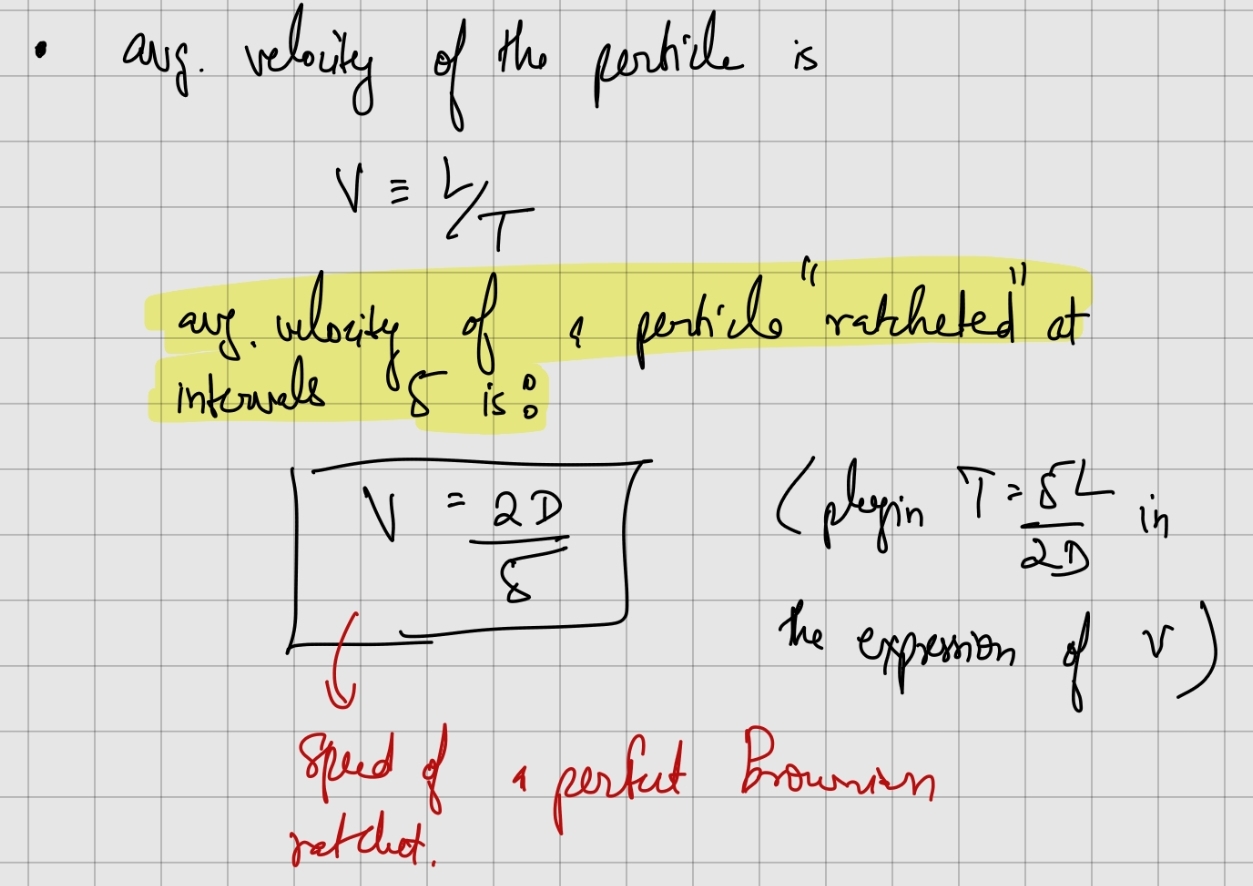 • avg. velocity of the particle is
V ≡ L/T
avg. velocity of a particle "ratcheted" at
intervals δ is:
V = 2D/δ (plugin T = δL/2D in
the expression of V)
Speed of a perfect Brownian
ratchet.